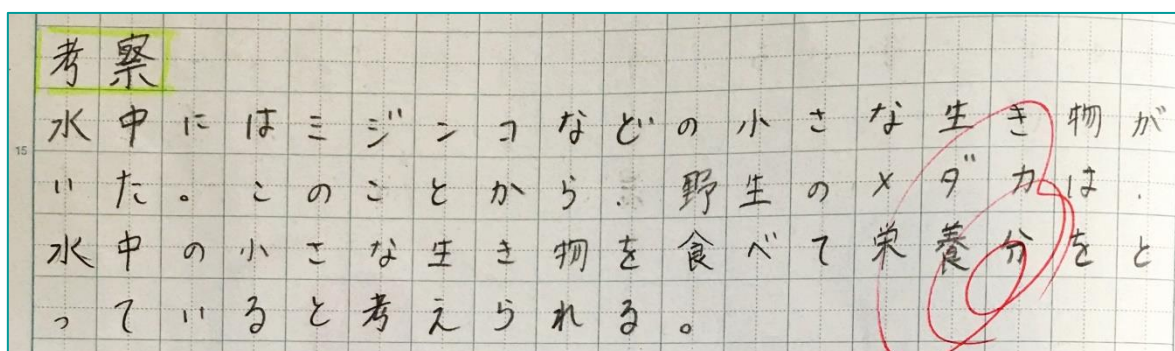 考察
水中にはミジンコなどの小さな生き物が
いた。このことから、野生のメダカは、
水中の小さな生き物を食べて栄養分をと
っていると考えられる。
15